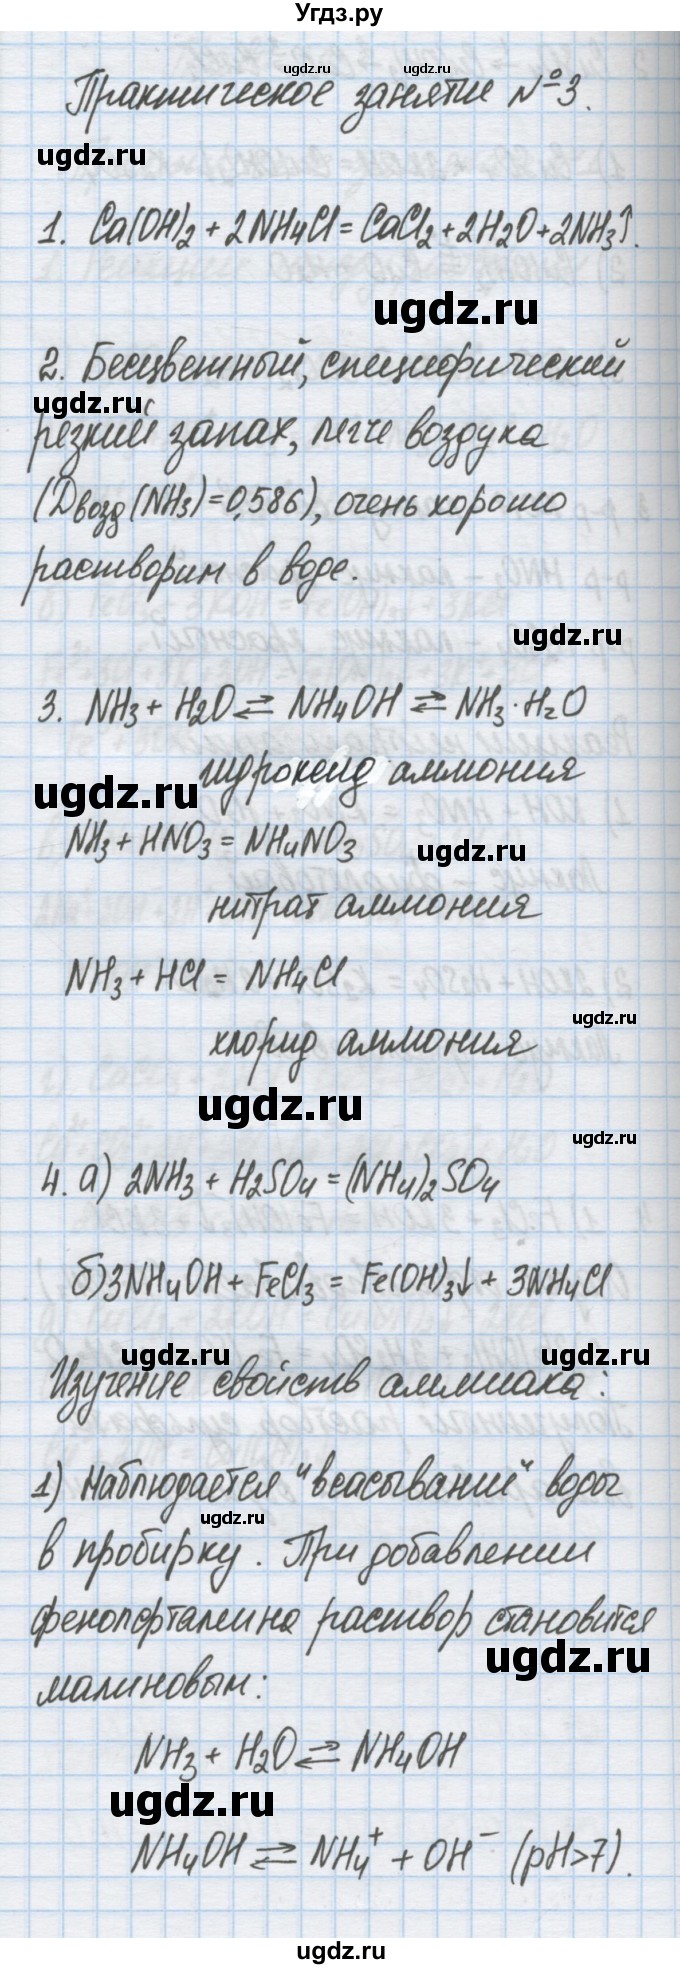 Угдз.ру
ugdz.ru ugdz.ru
Практическое занятие №3.
ugdz.ru
1. Ca(OH)2 + 2NH4Cl = CaCl2 + 2H2O + 2NH3↑.
ugdz.ru
2. Бесцветный, специфический
ugdz.ru
резкий запах, легче воздуха
(Dвозд(NH3)=0,586), очень хорошо
растворим в воде.
ugdz.ru
3. NH3 + H2O ⇄ NH4OH ⇄ NH3·H2O
гидроксид аммония
ugdz.ru
NH3 + HNO3 = NH4NO3
ugdz.ru
нитрат аммония
NH3 + HCl = NH4Cl
ugdz.ru
хлорид аммония
ugdz.ru
ugdz.ru
4. а) 2NH3 + H2SO4 = (NH4)2SO4
б) 3NH4OH + FeCl3 = Fe(OH)3↓ + 3NH4Cl
ugdz.ru
Изучение свойств аммиака:
1) Наблюдается "всасывание" воды
ugdz.ru
в пробирку. При добавлении
фенолфталеина раствор становится
ugdz.ru
малиновым:
NH3 + H2O ⇄ NH4OH
ugdz.ru
NH4OH ⇄ NH4+ + OH− (pH>7).
ugdz.ru